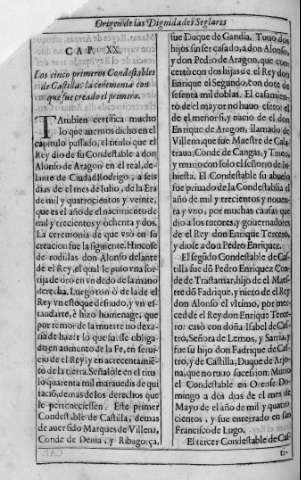 Origen de las Dignidades Seglares
CAP. XX.
Los cinco primeros Condestables
de Castilla: la ceremonia con
que fue creado el primero.
Tambien certifica mucho
lo que auemos dicho en el
capitulo passado, el titulo que el
Rey dio de su Condestable a don
Alonso de Aragon en el real, de-
lante de Ciudad Rodrigo, a seis
dias de el mes de Iulio, de la Era
de mil y quatrocientos y veinte,
que es el año de el nacimiento de
mil y trecientos y ochenta y dos.
La ceremonia de que vsò en su
creacion fue la siguiente. Hincose
de rodillas don Alonso delante
de el Rey, el qual le puso vna sor-
tija de oro en vn dedo de la mano
derecha. Luego tomò de la de el
Rey vn estoque desnudo, y vn es-
tandarte, è hizo homenage, que
por temor de la muerte no dexa-
ria de hazer lo que fuesse obliga-
do en aumento de la Fe, en serui-
cio de el Rey, y en acrecentamie-
to de la tierra. Señalòle en el titu-
lo quarenta mil marauedis de qui-
tacion, demas de los derechos que
le pertenecissen. Este primer
Condestable de Castilla, demas
de auer sido Marques de Villena,
Conde de Denia, y Ribagorça,
fue Duque de Gandia. Tuuo dos
hijos sin ser casado, a don Alonso,
y don Pedro de Aragon, que con-
certò con dos hijas de el Rey don
Enrique el Segundo, con dote de
sesenta mil doblas. El casamien-
to de el mayor no huuo efeto: el
de el menor si, y nacio de el don
Enrique de Aragon, llamado de
Villena, que fue Maestre de Cala-
traua, Conde de Cangas, y Tineo,
y murio con solo el señorio de I-
niesta. El Condestable su abuelo
fue priuado de la Condestablia el
año de mil y trecientos y nouen-
ta y vno, por muchas causas que
dio a los tutores y gouernadores
de el Rey don Enrique Tercero,
y diose a don Pedro Enriquez.
El segũdo Condestable de Cas-
tilla fue dõ Pedro Enriquez Con-
de de Trastamara, hijo de el Maes-
tre dõ Fadrique, y nieto de el Rey
don Alonso el vltimo, por mer-
ced de el Rey don Enrique Terce-
ro: casò con doña Isabel de Cas-
tro, Señora de Lemos, y Sarria;
fue su hijo don Fadrique de Cas-
tro, y de Castilla, Duque de Arjo-
na, que no tuuo sucesion. Murio
el Condestable en Orense Do-
mingo a dos dias de el mes de
Mayo de el año de mil y quatro-
cientos, y fue enterrado en san
Francisco de Lugo.
El tercer Condestable de Cas-
ti-